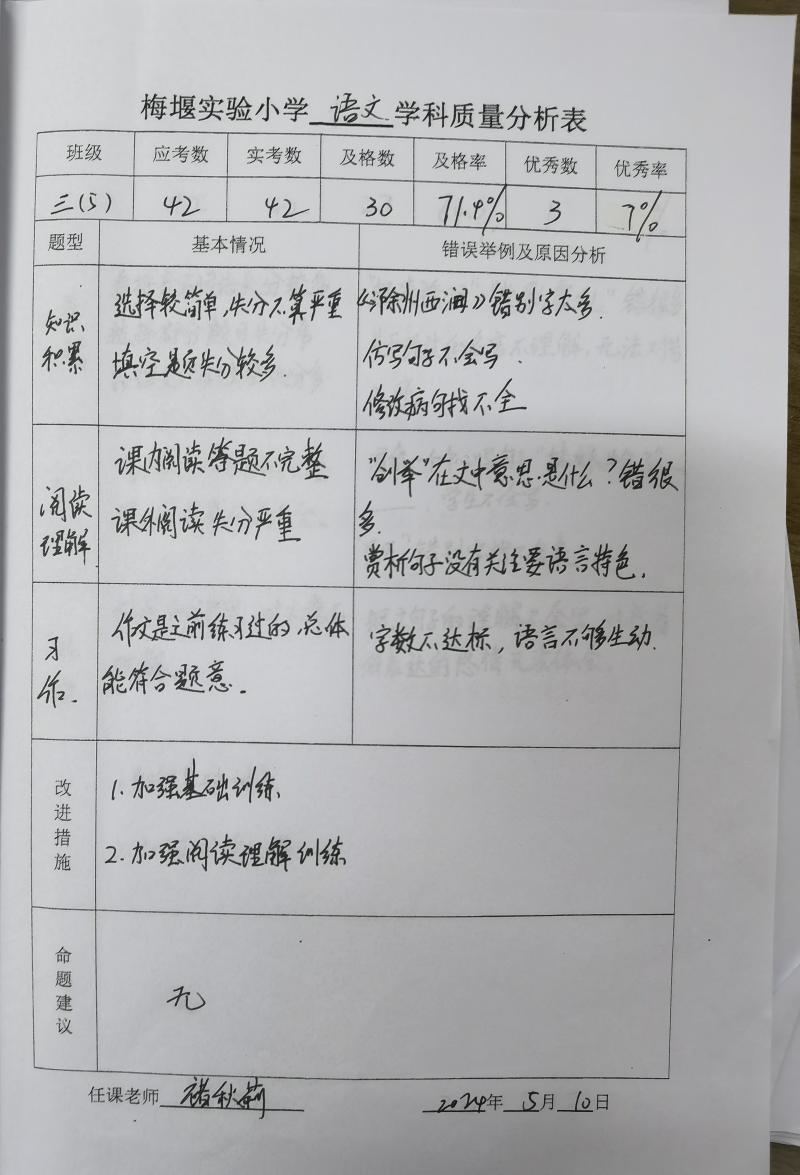 梅堰实验小学 语文 学科质量分析表
班级 应考数 实考数 及格数 及格率 优秀数 优秀率
三(5) 42 42 30 71.4% 3 7%
题型 基本情况 错误举例及原因分析
知识
积累
选择较简单,失分不算严重
填空题失分较多.
《滁州西涧》错别字太多.
仿写句子不会写.
修改病句找不全
阅读
理解
课内阅读答题不完整
课外阅读失分严重
"创举"在文中意思是什么?错很
多.
赏析句子没有关注要语言特色.
习
作.
作文是之前练习过的,总体
能符合题意.
字数不达标,语言不够生动.
改进措施
1.加强基础训练
2.加强阅读理解训练
命题建议
无
任课老师 褚秋莉 2024年 5月 10日